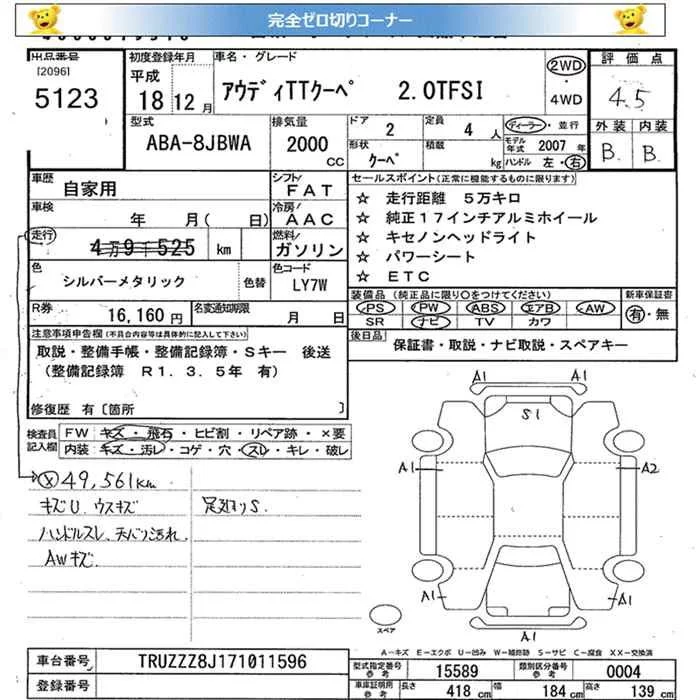 完全ゼロ切りコーナー
出品番号
[2096]
5123
初度登録年月
平成
18年12月
車名・グレード
アウディTTクーペ 2.0TFSI
2WD
・
4WD
評価点
4.5
外装 内装
B. B.
型式
ABA-8JBWA
排気量
2000
CC
ドア 2
定員 4 人
形状 クーペ
積載 kg
ディーラー・並行
モデル年式 2007 年
ハンドル 左・右
車歴 自家用
シフト FAT
車検 年 月( 日)
冷房 AAC
走行 4万9千525 km
燃料 ガソリン
色 シルバーメタリック
色替
色コード LY7W
R券 16,160円
名変期限 月 日
セールスポイント(正常に機能するものに限ります)
☆ 走行距離 5万キロ
☆ 純正17インチアルミホイール
☆ キセノンヘッドライト
☆ パワーシート
☆ ETC
装備品 (純正品に限り○をつけてください)
PS PW ABS エアB AW
SR ナビ TV カワ
新車保証書
有・無
後日品 保証書・取説・ナビ取説・スペアキー
注意事項申告欄(不具合内容等は具体的に記入して下さい)
取説・整備手帳・整備記録簿・Sキー 後送
(整備記録簿 R1.3.5年 有)
修復歴 有〔箇所 〕
検査員記入欄
FW キズ・飛石・ヒビ割・リペア跡・×要
内装 キズ・汚レ・コゲ・穴・スレ・キレ・破レ
49,561km
キズU.ウスキズ
ハンドルスレ、天バリ汚れ.
AWキズ.
足廻りS.
A1 A1
S1
A1 A2
A1 A1
A1
スペア
A-キズ E-エクボ U-凹み W-補修跡 S-サビ C-腐食 XX-交換済
車台番号 TRUZZZ8J171011596
登録番号
型式指定番号 参考 15589
類別区分番号 参考 0004
車庫証明用 参考 長さ 418 cm 幅 184 cm 高さ 139 cm